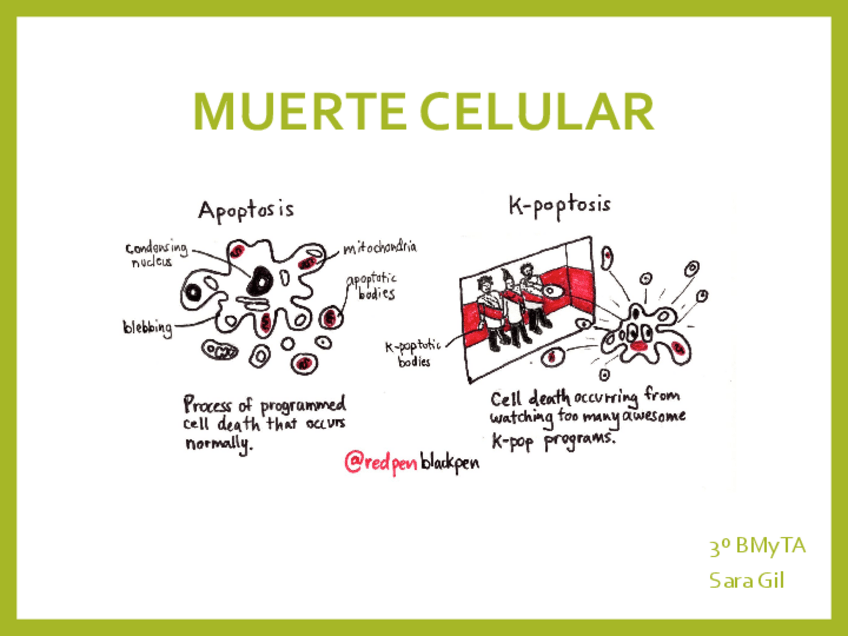 MUERTE CELULAR
Apoptosis
condensing
nucleus
mitochondria
apoptotic
bodies
blebbing
Process of programmed
cell death that occurs
normally.
K-poptosis
K-poptotic
bodies
Cell death occurring from
watching too many awesome
K-pop programs.
@redpenblackpen
3º BMyTA
Sara Gil